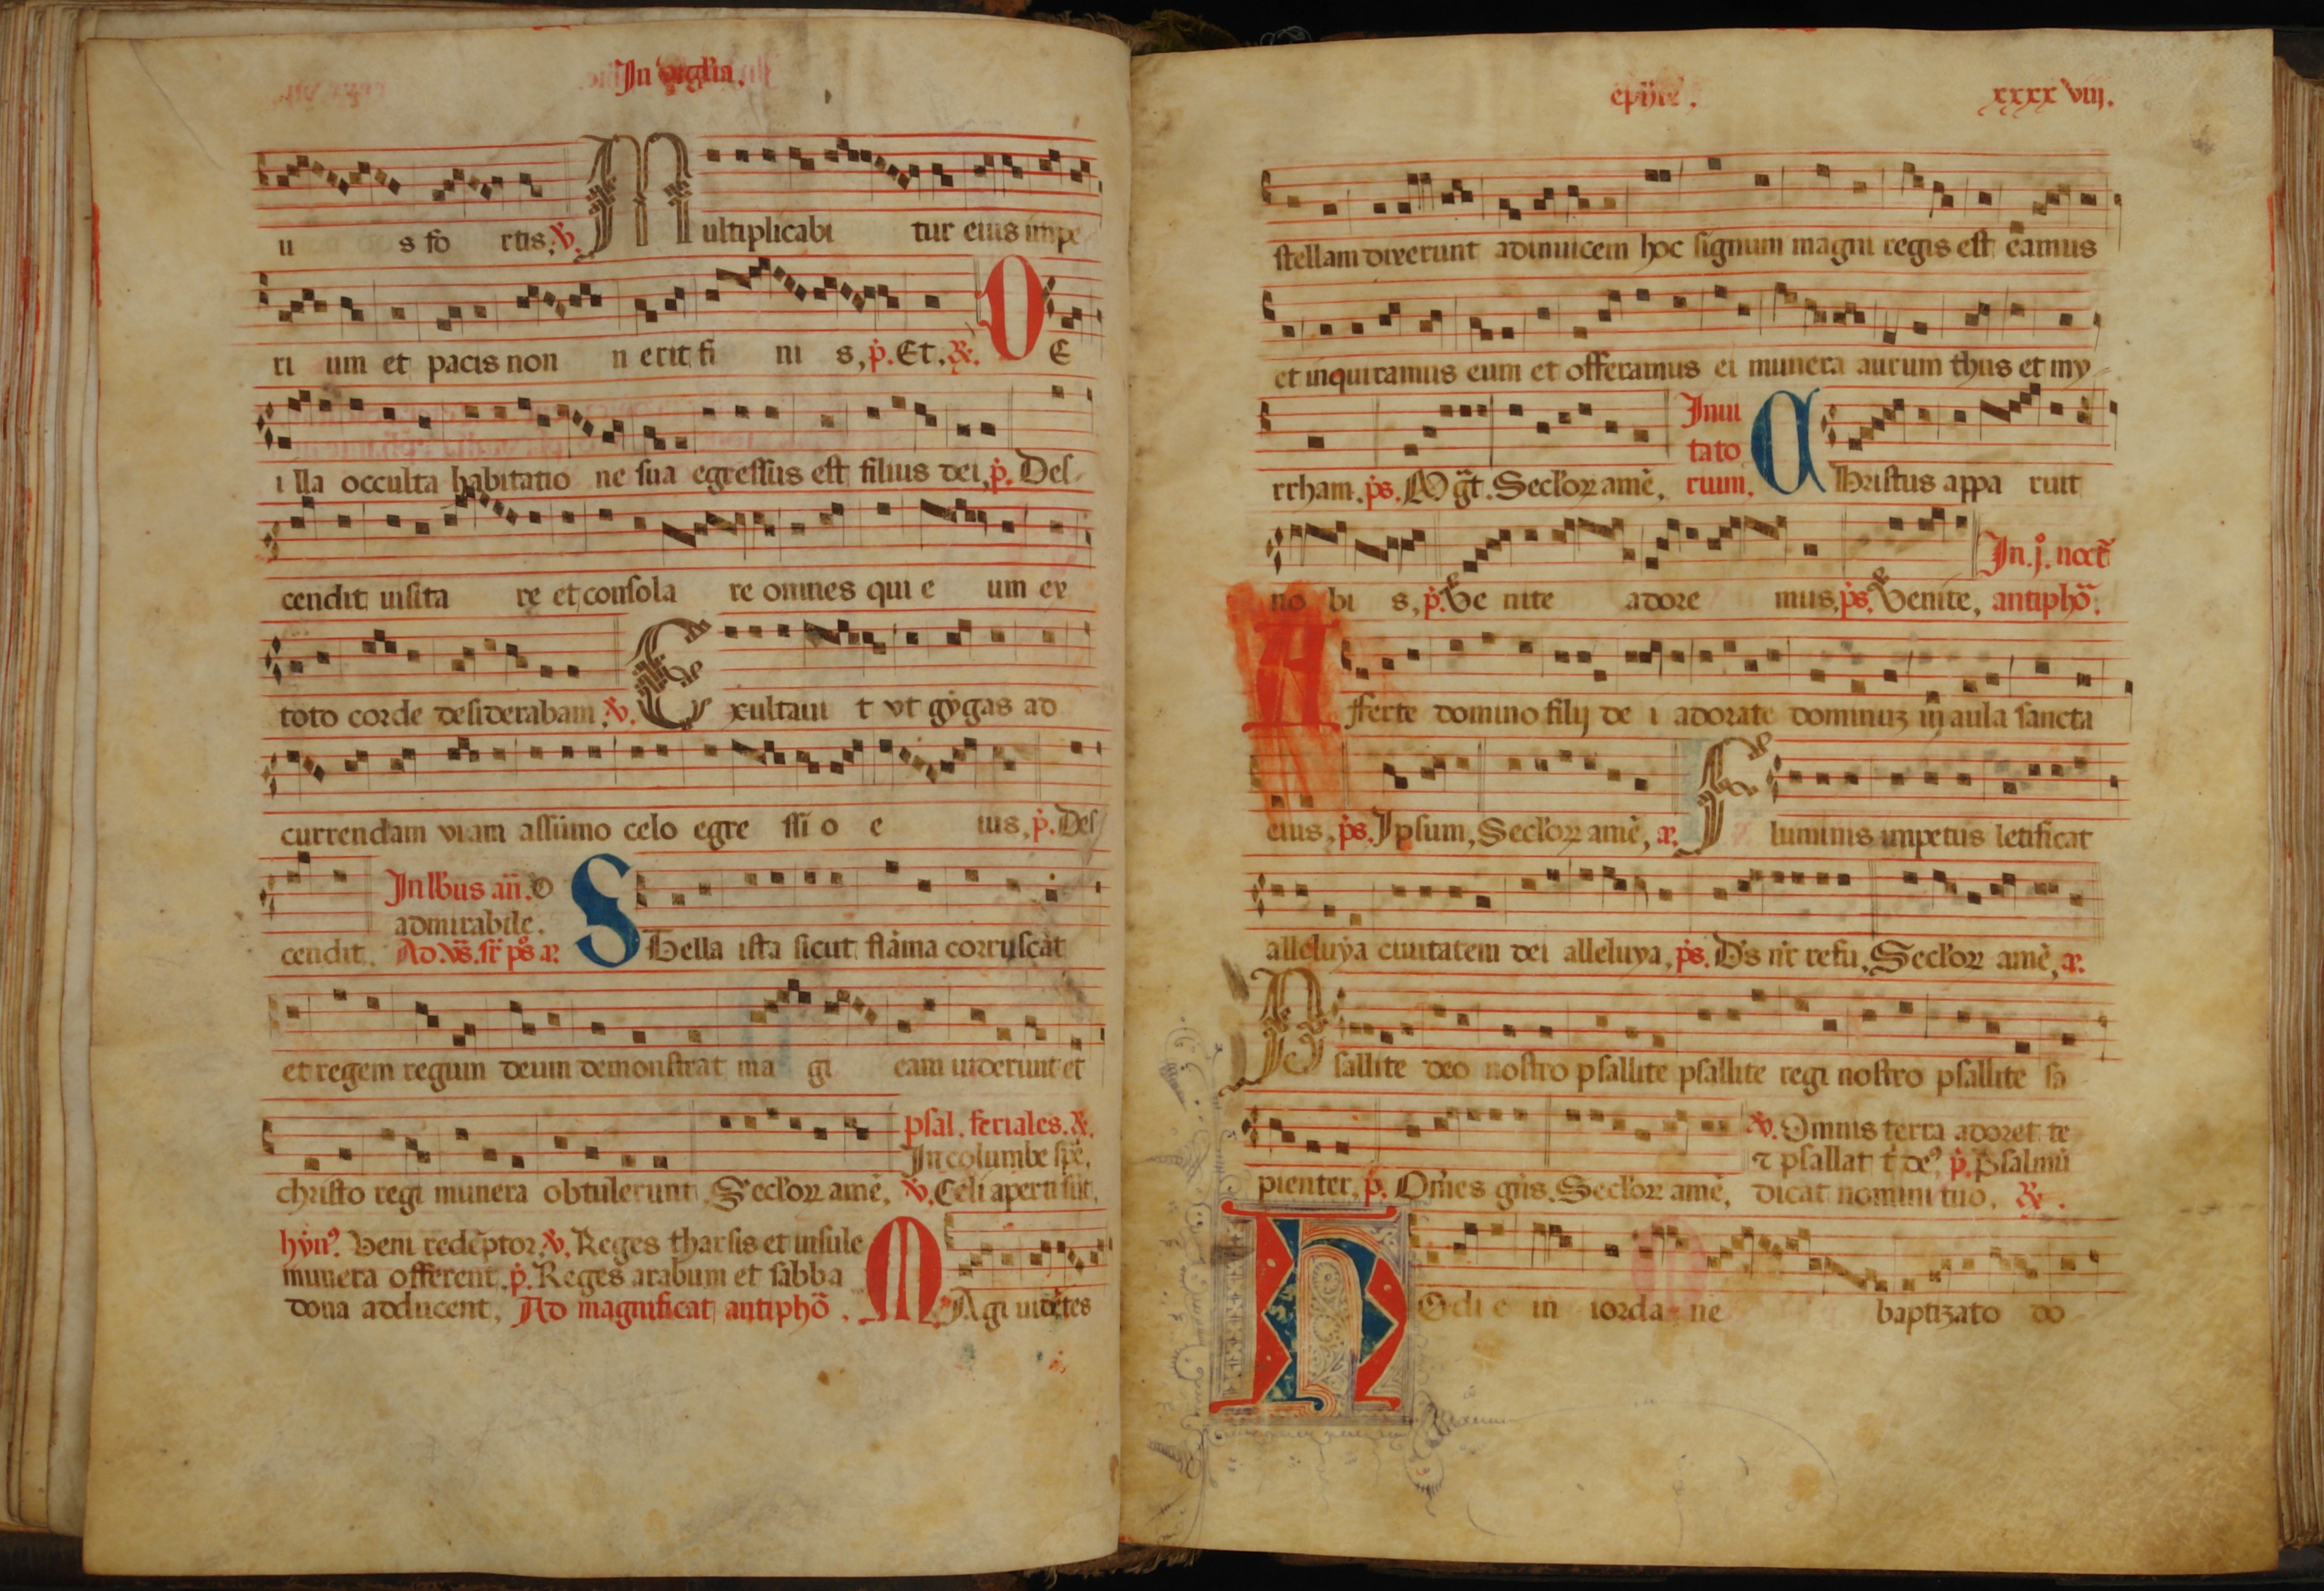 In vigilia.
u s fo rtis. V. Multiplicabi tur eius impe
ri um et pacis non n erit fi ni s, p. Et. R. D E
i lla occulta habitatio ne sua egressus est filius dei, p. Des
cendit uisita re et consola re omnes qui e um ex
toto corde desiderabam. V. Exultaui t vt gygas ad
currendam viam assumo celo egre ssi o e ius, p. Des
In lbus an. O
admirabile.
cendit. Ad. vs. fr ps a. S Tella ista sicut flāma corruscat
et regem regum deum demonstrat ma gi eam uiderunt et
psal. feriales. R.
In columbe spē,
christo regi munera obtulerunt Seclor amē, V. Celi aperti sūt,
hyn⁹. Veni redēptor, V. Reges tharsis et insule
munera offerent, p. Reges arabum et sabba
dona adducent, Ad magnificat antiphō. M Agi uidētes
epyie. xxxx viij.
stellam dixerunt adinuicem hoc signum magni regis est eamus
et inquiramus eum et offeramus ei munera aurum thus et my
Inui
tato
rrham. ps. Mgt. Seclor amē, rium, C Hristus appa ruit
In. j. noct
no bi s, p. Ve nite adore mus, ps. Venite, antiphō.
A fferte domino filij de i adorate dominuz in aula sancta
eius, ps. Ipsum, Seclor amē, a. F luminis impetus letificat
alleluya ciuitatem dei alleluya, ps. Ds nr refu, Seclor amē, a.
P sallite deo nostro psallite psallite regi nostro psallite sa
V. Omnis terra adoret te
⁊ psallat t de⁹ p. Psalmū
pienter, p. Oms gns. Seclor amē, dicat nomini tuo, R.
H Odi e in iorda ne baptizato do